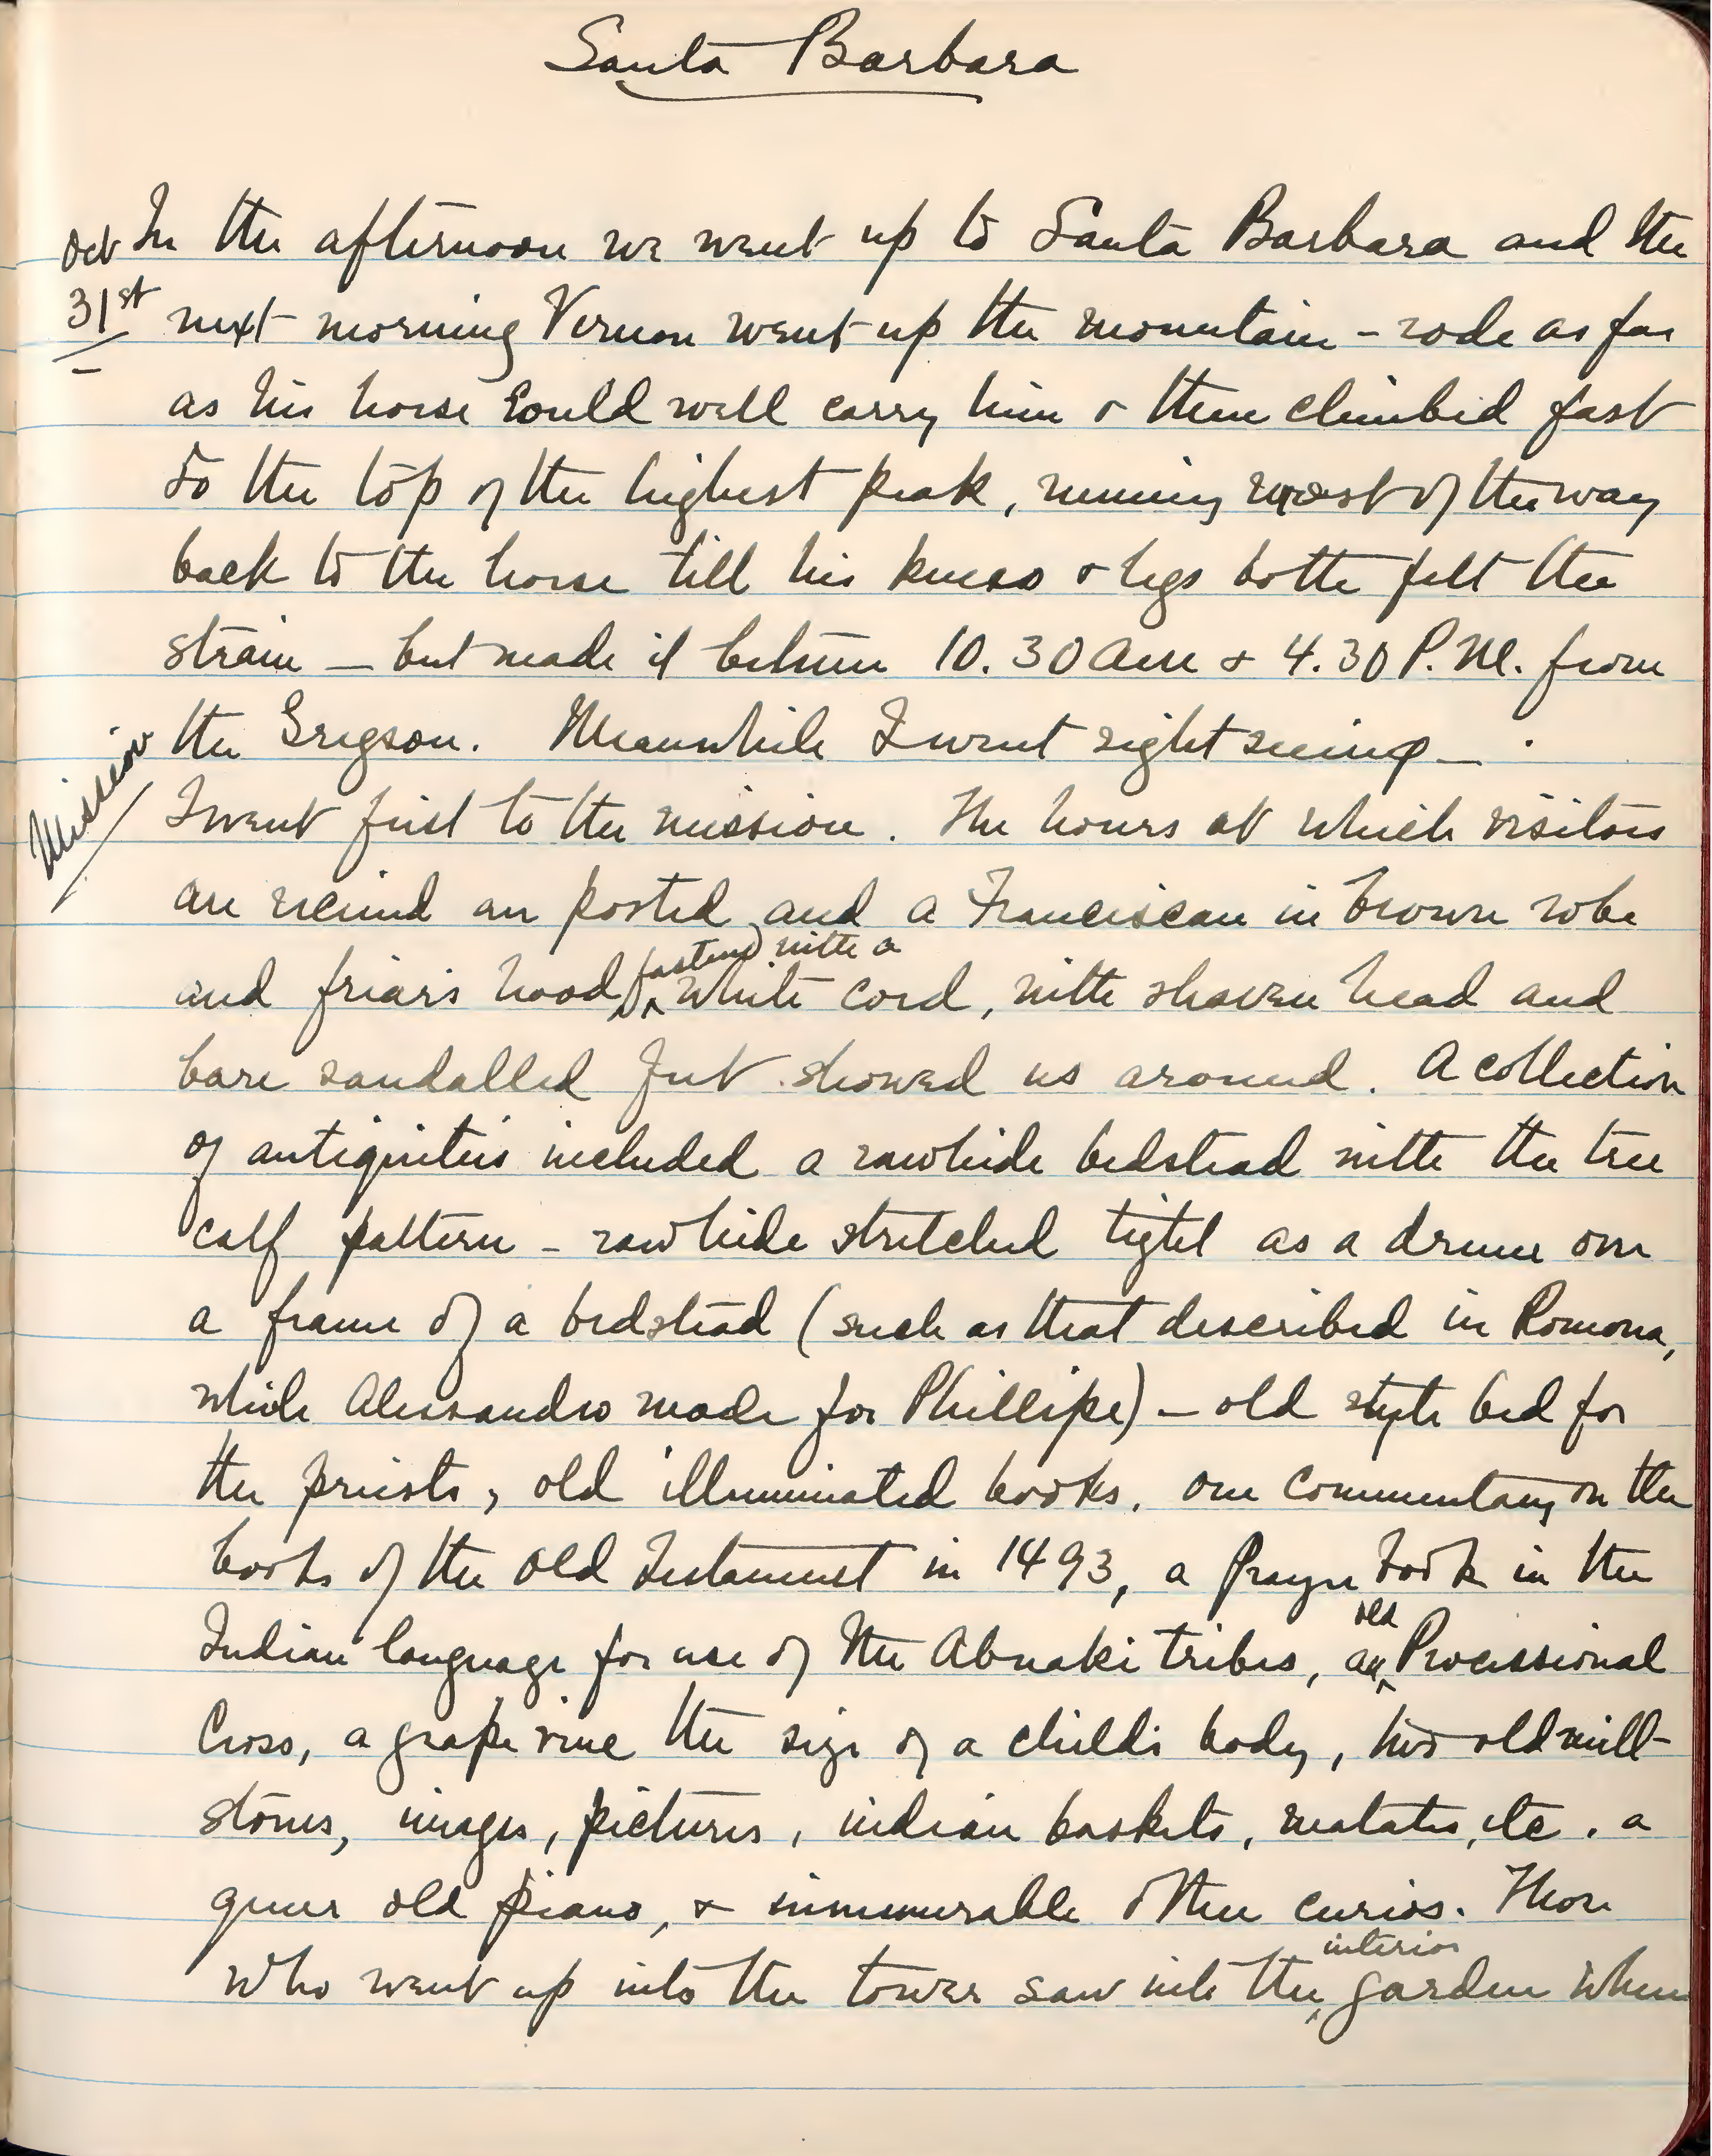 Santa Barbara
Oct In the afternoon we went up to Santa Barbara and the
31st next morning Vernon went up the mountain - rode as far
as his horse could well carry him & then climbed fast
to the top of the highest peak, running most of the way
back to the horse till his knees & legs both felt the
strain — but made it between 10.30 AM & 4.30 P.M. from
the Gregson. Meanwhile I went sight seeing —
Mission
I went first to the mission. The hours at which visitors
are received are posted, and a Franciscan in brown robe
fastened with a
and friar's hood, white cord, with shaven head and
bare sandalled feet showed us around. A collection
of antiquities included a rawhide bedstead with the tree
calf pattern - rawhide stretched tight as a drum over
a frame of a bedstead (such as that described in Romona,
which Alessandro made for Phillipe) - old style bed for
the priests, old illuminated books, one commentary on the
books of the Old Testament in 1493, a prayer book in the
old
Indian language for use of the Abnaki tribes, an Processional
Cross, a grape vine the size of a child's body, two old mill-
stones, images, pictures, indian baskets, metates, etc. a
queer old piano, & innumerable other curios. Those
interior
who went up into the tower saw into the garden where